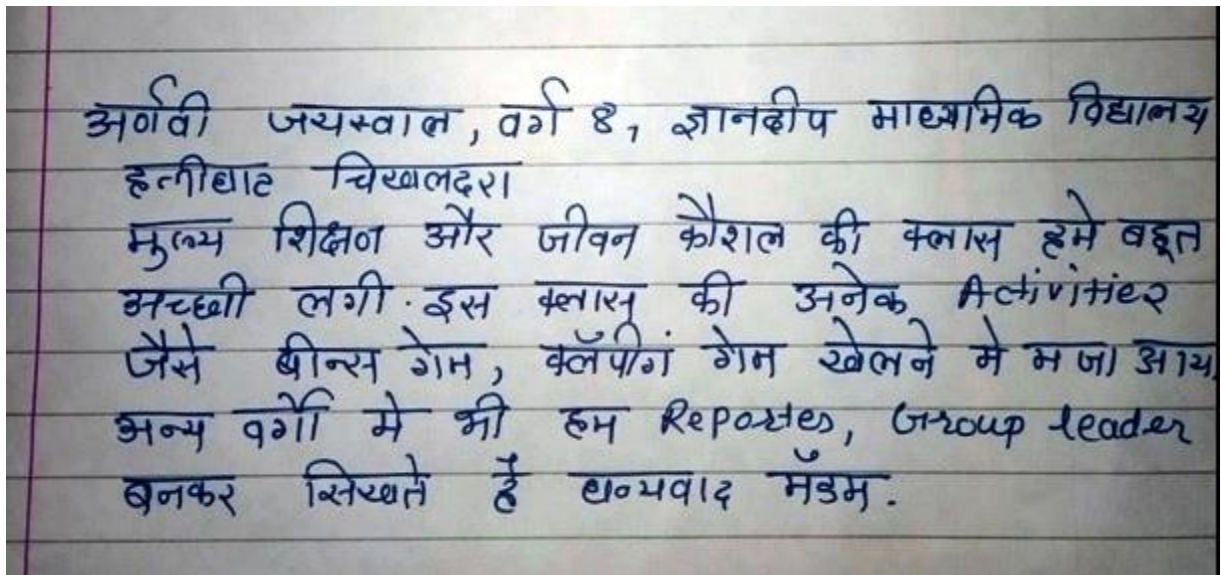 अर्णवी जयस्वाल, वर्ग 8, ज्ञानदीप माध्यमिक विद्यालय
हत्तीघाट चिखलदरा
मुल्य शिक्षण और जीवन कौशल की क्लास हमे बहूत
अच्छी लगी. इस क्लास की अनेक Activities
जैसे बीन्स गेम, क्लॅपींग गेम खेलने मे मजा आया
अन्य वर्गो मे भी हम Reporter, Group leader
बनकर सिखते है धन्यवाद मॅडम.